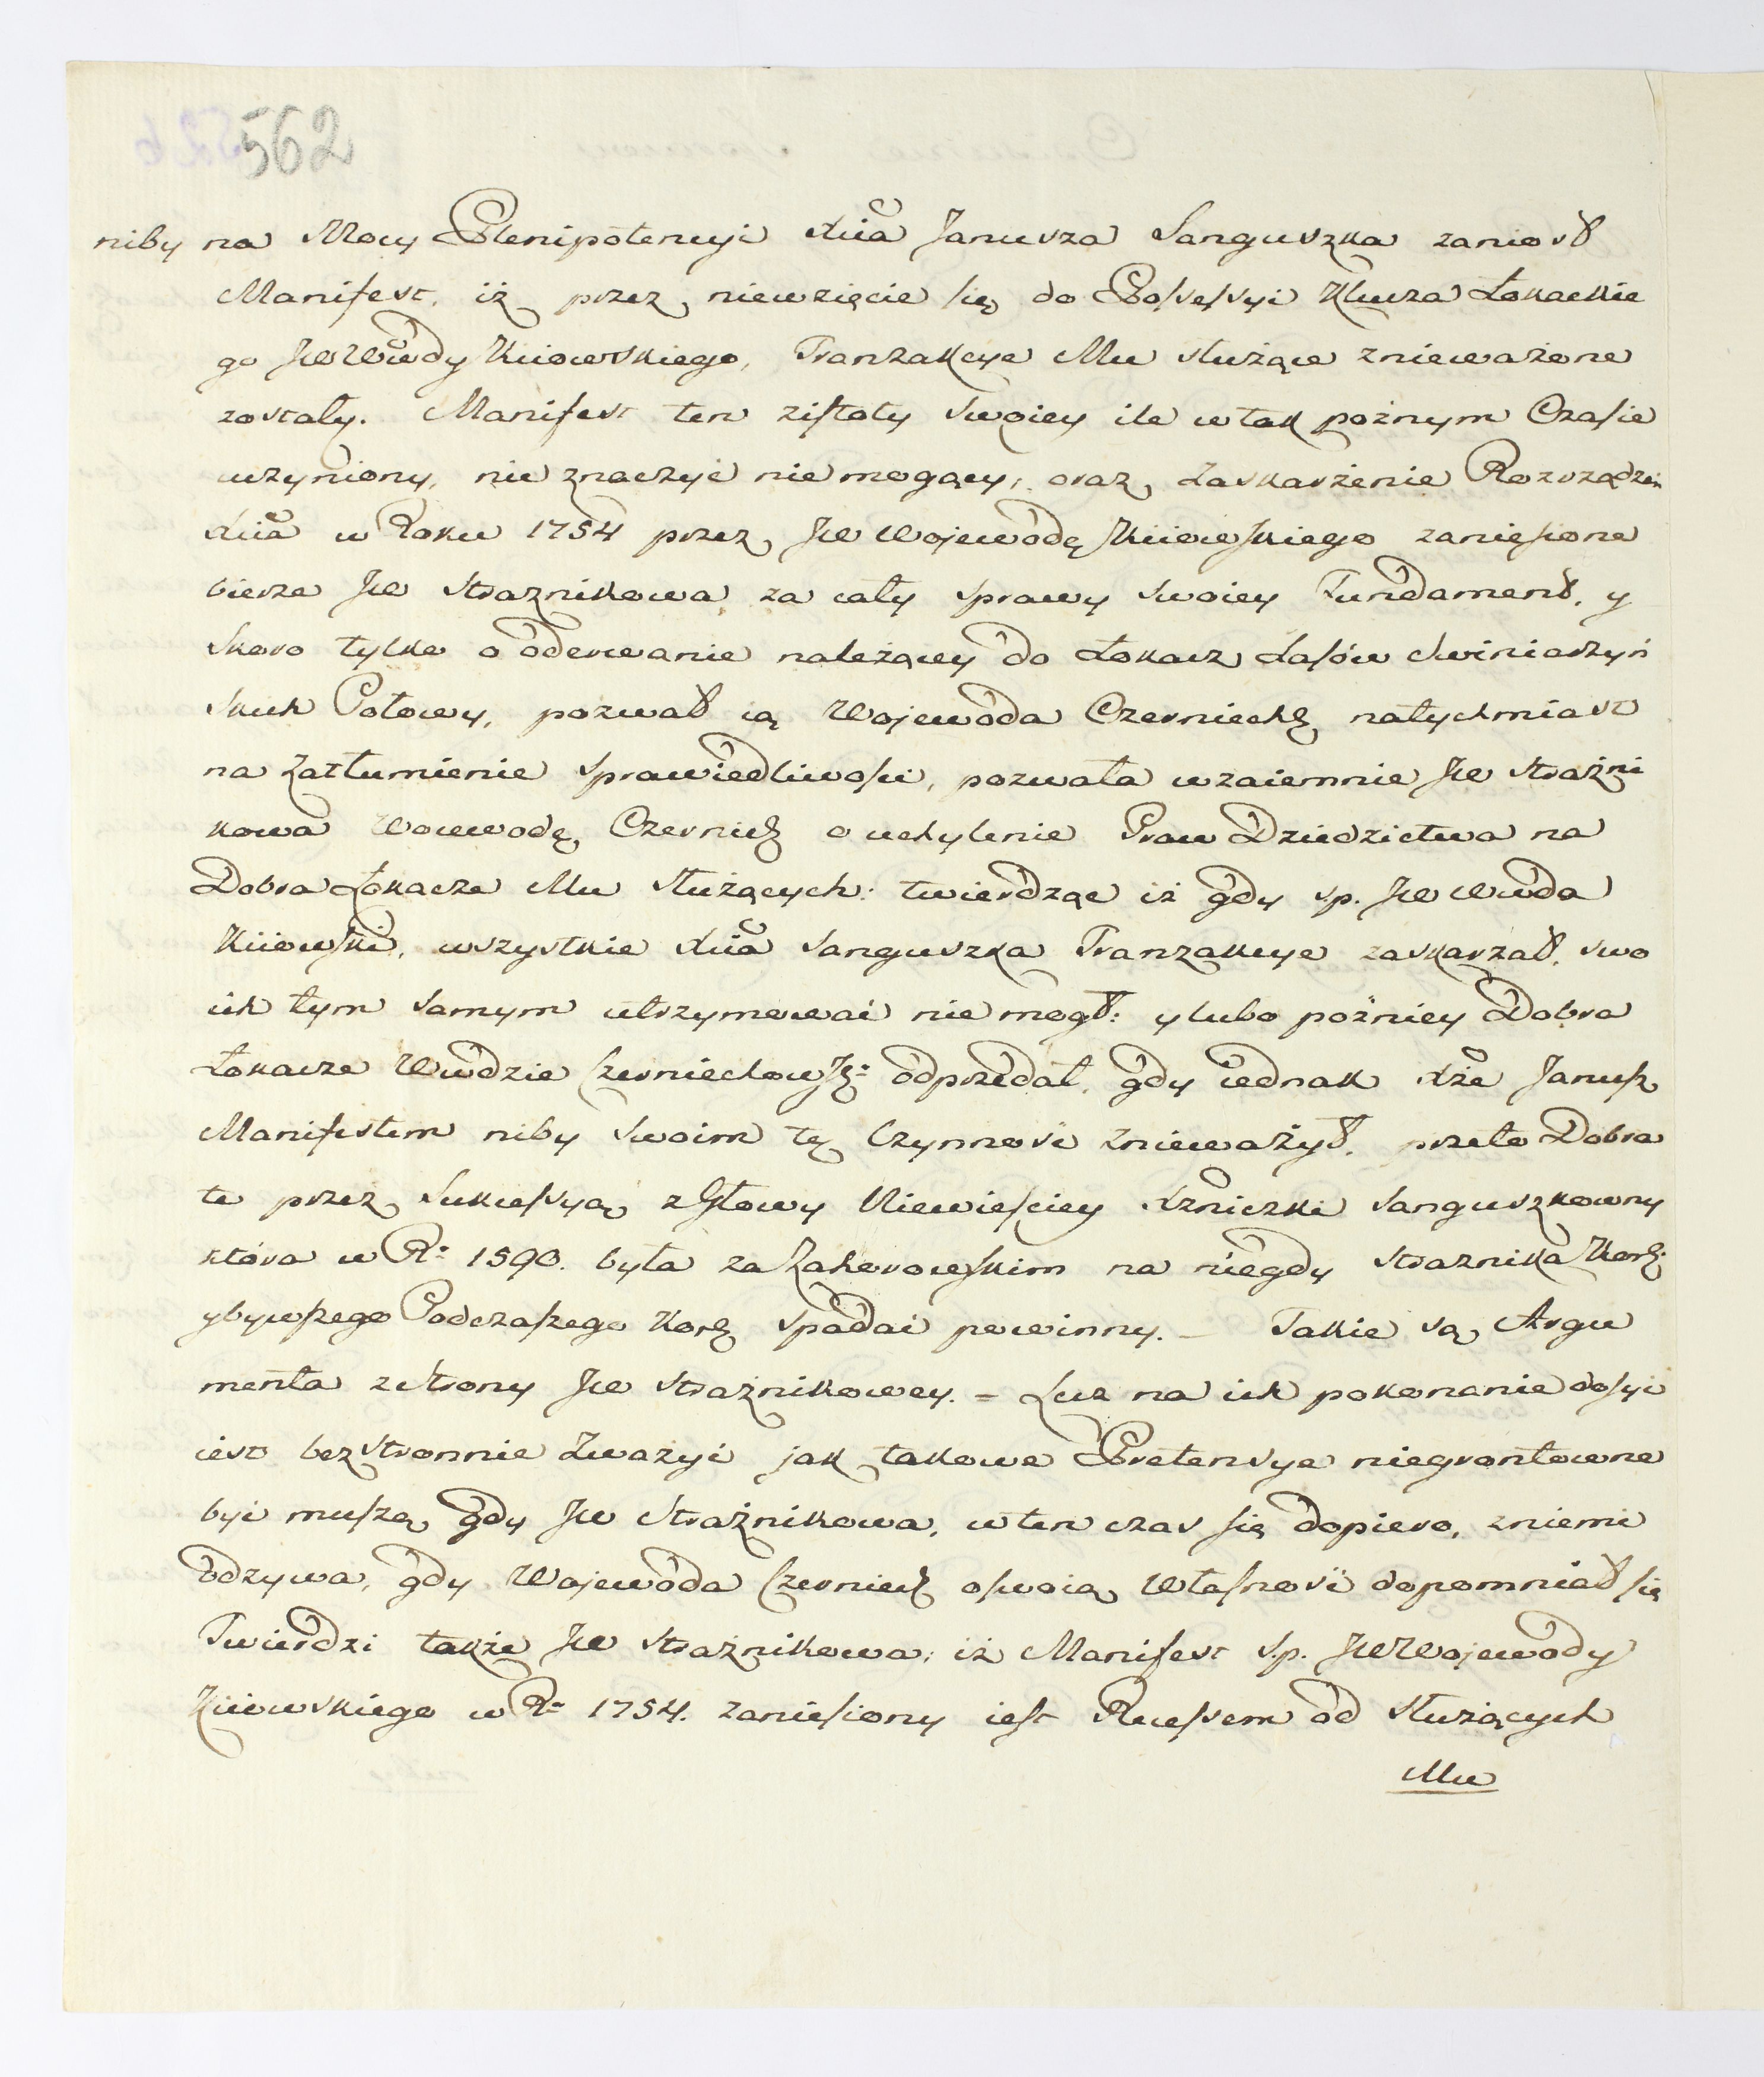 562
niby na Mocy Plenipotencyi Xcia Janusza Sanguszka zaniosł
Manifest, iż przez niewzięcie się do Possessyi Klucza Łokackie
go JW Wwdy Kiiowskiego, Tranzakcye Mu służące znieważone
zostały. Manifest ten zistoty swoiey ile w tak poźnym Czasie
uczyniony, nic znaczyć nie mogący, oraz zaskarżenie Rozrządzeń
Xcia w Roku 1754 przez JW Wojewodę Kiiowskiego zaniesione
bierze JW Strażnikowa za cały sprawy swoiey Fundament, y
skoro tylko o oderwanie należącey do Łokacz Lasów Swiniarzyń
skich Połowy, pozwał ią Wojewoda Czerniech natychmiast
na zatłumienie sprawiedliwości, pozwała wzaiemnie JW Strażni
kowa Woiewodę Czernich o uchylenie Praw Dziedzictwa na
Dobra Łokacze Mu służących: twierdząc iż gdy sp. JW Wwda
Kiiowski, wszystkie Xcia Sanguszka Tranzakcye zaskarżał, swo
ich tym samym utrzymować nie mogł: y lubo poźniey Dobra
Łokacze Wwdzie Czerniechowsk: odprzedał, gdy iednak Xże Janusz
Manifestem niby swoim tę Czynność znieważył, przeto Dobra
te przez Sukcessyą z Głowy Niewieściey Xżniczki Sanguszkowny
która w R: 1590. była za Zahorowskim na niegdy Strażnika Kor:
y bywszego Podczaszego Kor: spadać powinny. – Takie są Argu
menta ze strony JW Strażnikowey. = Lecz na ich pokonanie dosyć
iest bezstronnie zważyć jak takowe Pretensye niegrontowne
być muszą, gdy JW Strażnikowa, w ten czas się dopiero, zniemi
odzywa, gdy Wojewoda Czerniech o swoią Własność dopomniał się
Twierdzi także JW Strażnikowa, iż Manifest S.p. JW Wojewody
Kiiowskiego w R: 1754. zaniesiony iest Recessem od służących
Mu